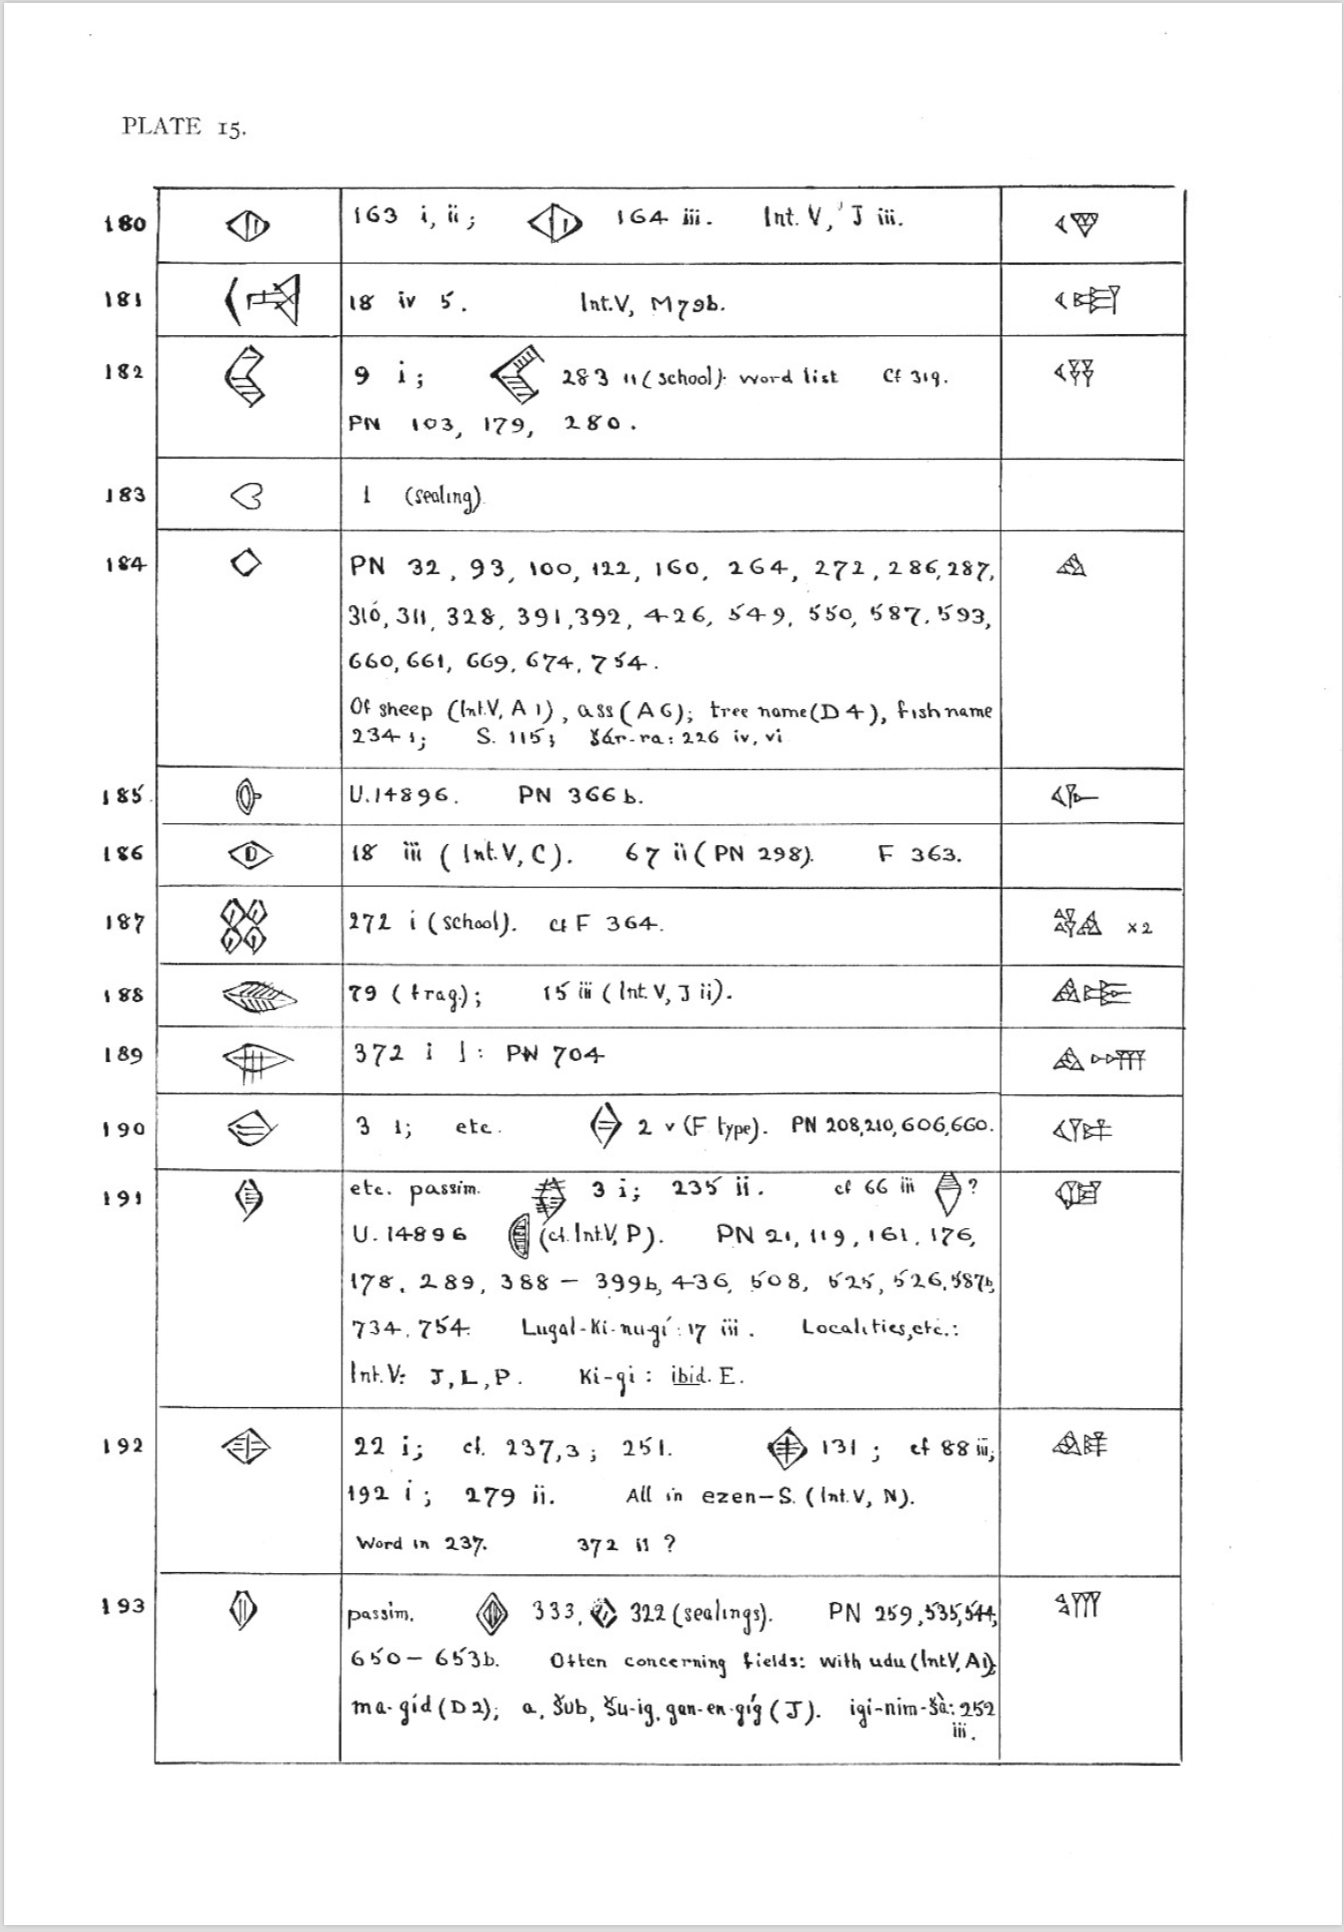 PLATE 15.
180 163 i, ii; 164 iii. Int. V, J iii.
181 18 iv 5. Int.V, M79b.
182 9 i; 283 ii (school). word list Cf 319.
PN 103, 179, 280.
183 1 (sealing)
184 PN 32, 93, 100, 122, 160, 264, 272, 286, 287,
310, 311, 328, 391, 392, 426, 549, 550, 587, 593,
660, 661, 669, 674, 754.
Of sheep (Int.V, A 1), ass (A 6); tree name (D 4), fish name
234 i; S. 115; šár-ra: 226 iv, vi
185 U.14896. PN 366 b.
186 18 iii (Int.V, C). 67 ii (PN 298). F 363.
187 272 i (school). cf F 364. x 2
188 79 (frag.); 15 iii (Int. V, J ii).
189 372 i 1: PN 704
190 3 i; etc. 2 v (F type). PN 208, 210, 606, 660.
191 etc. passim. 3 i; 235 ii. cf 66 iii ?
U. 14896 (cf. Int.V, P). PN 21, 119, 161, 176,
178, 289, 388 – 399b, 436, 508, 525, 526, 587b,
734, 754. Lugal-ki-nu-gí: 17 iii. Localities, etc.:
Int. V: J, L, P. Ki-gi: ibid. E.
192 22 i; cf. 237, 3; 251. 131; cf 88 iii;
192 i; 279 ii. All in ezen–S. (Int. V, N).
Word in 237. 372 ii ?
193 passim. 333, 322 (sealings). PN 259, 535, 544,
650 – 653b. Often concerning fields: with udu (Int.V, A1),
ma-gíd (D 2); a, šub, šu-ig, gan-en-gíg (J). igi-nim-šà: 252
iii.